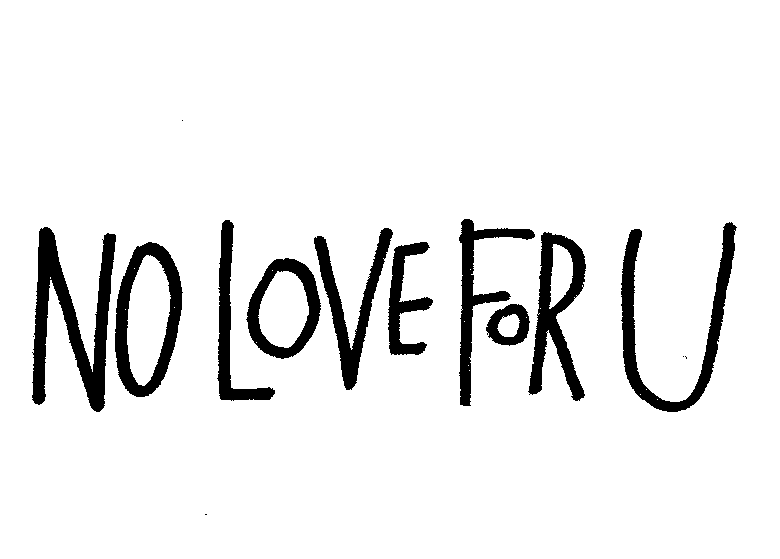 NO LOVE FOR U